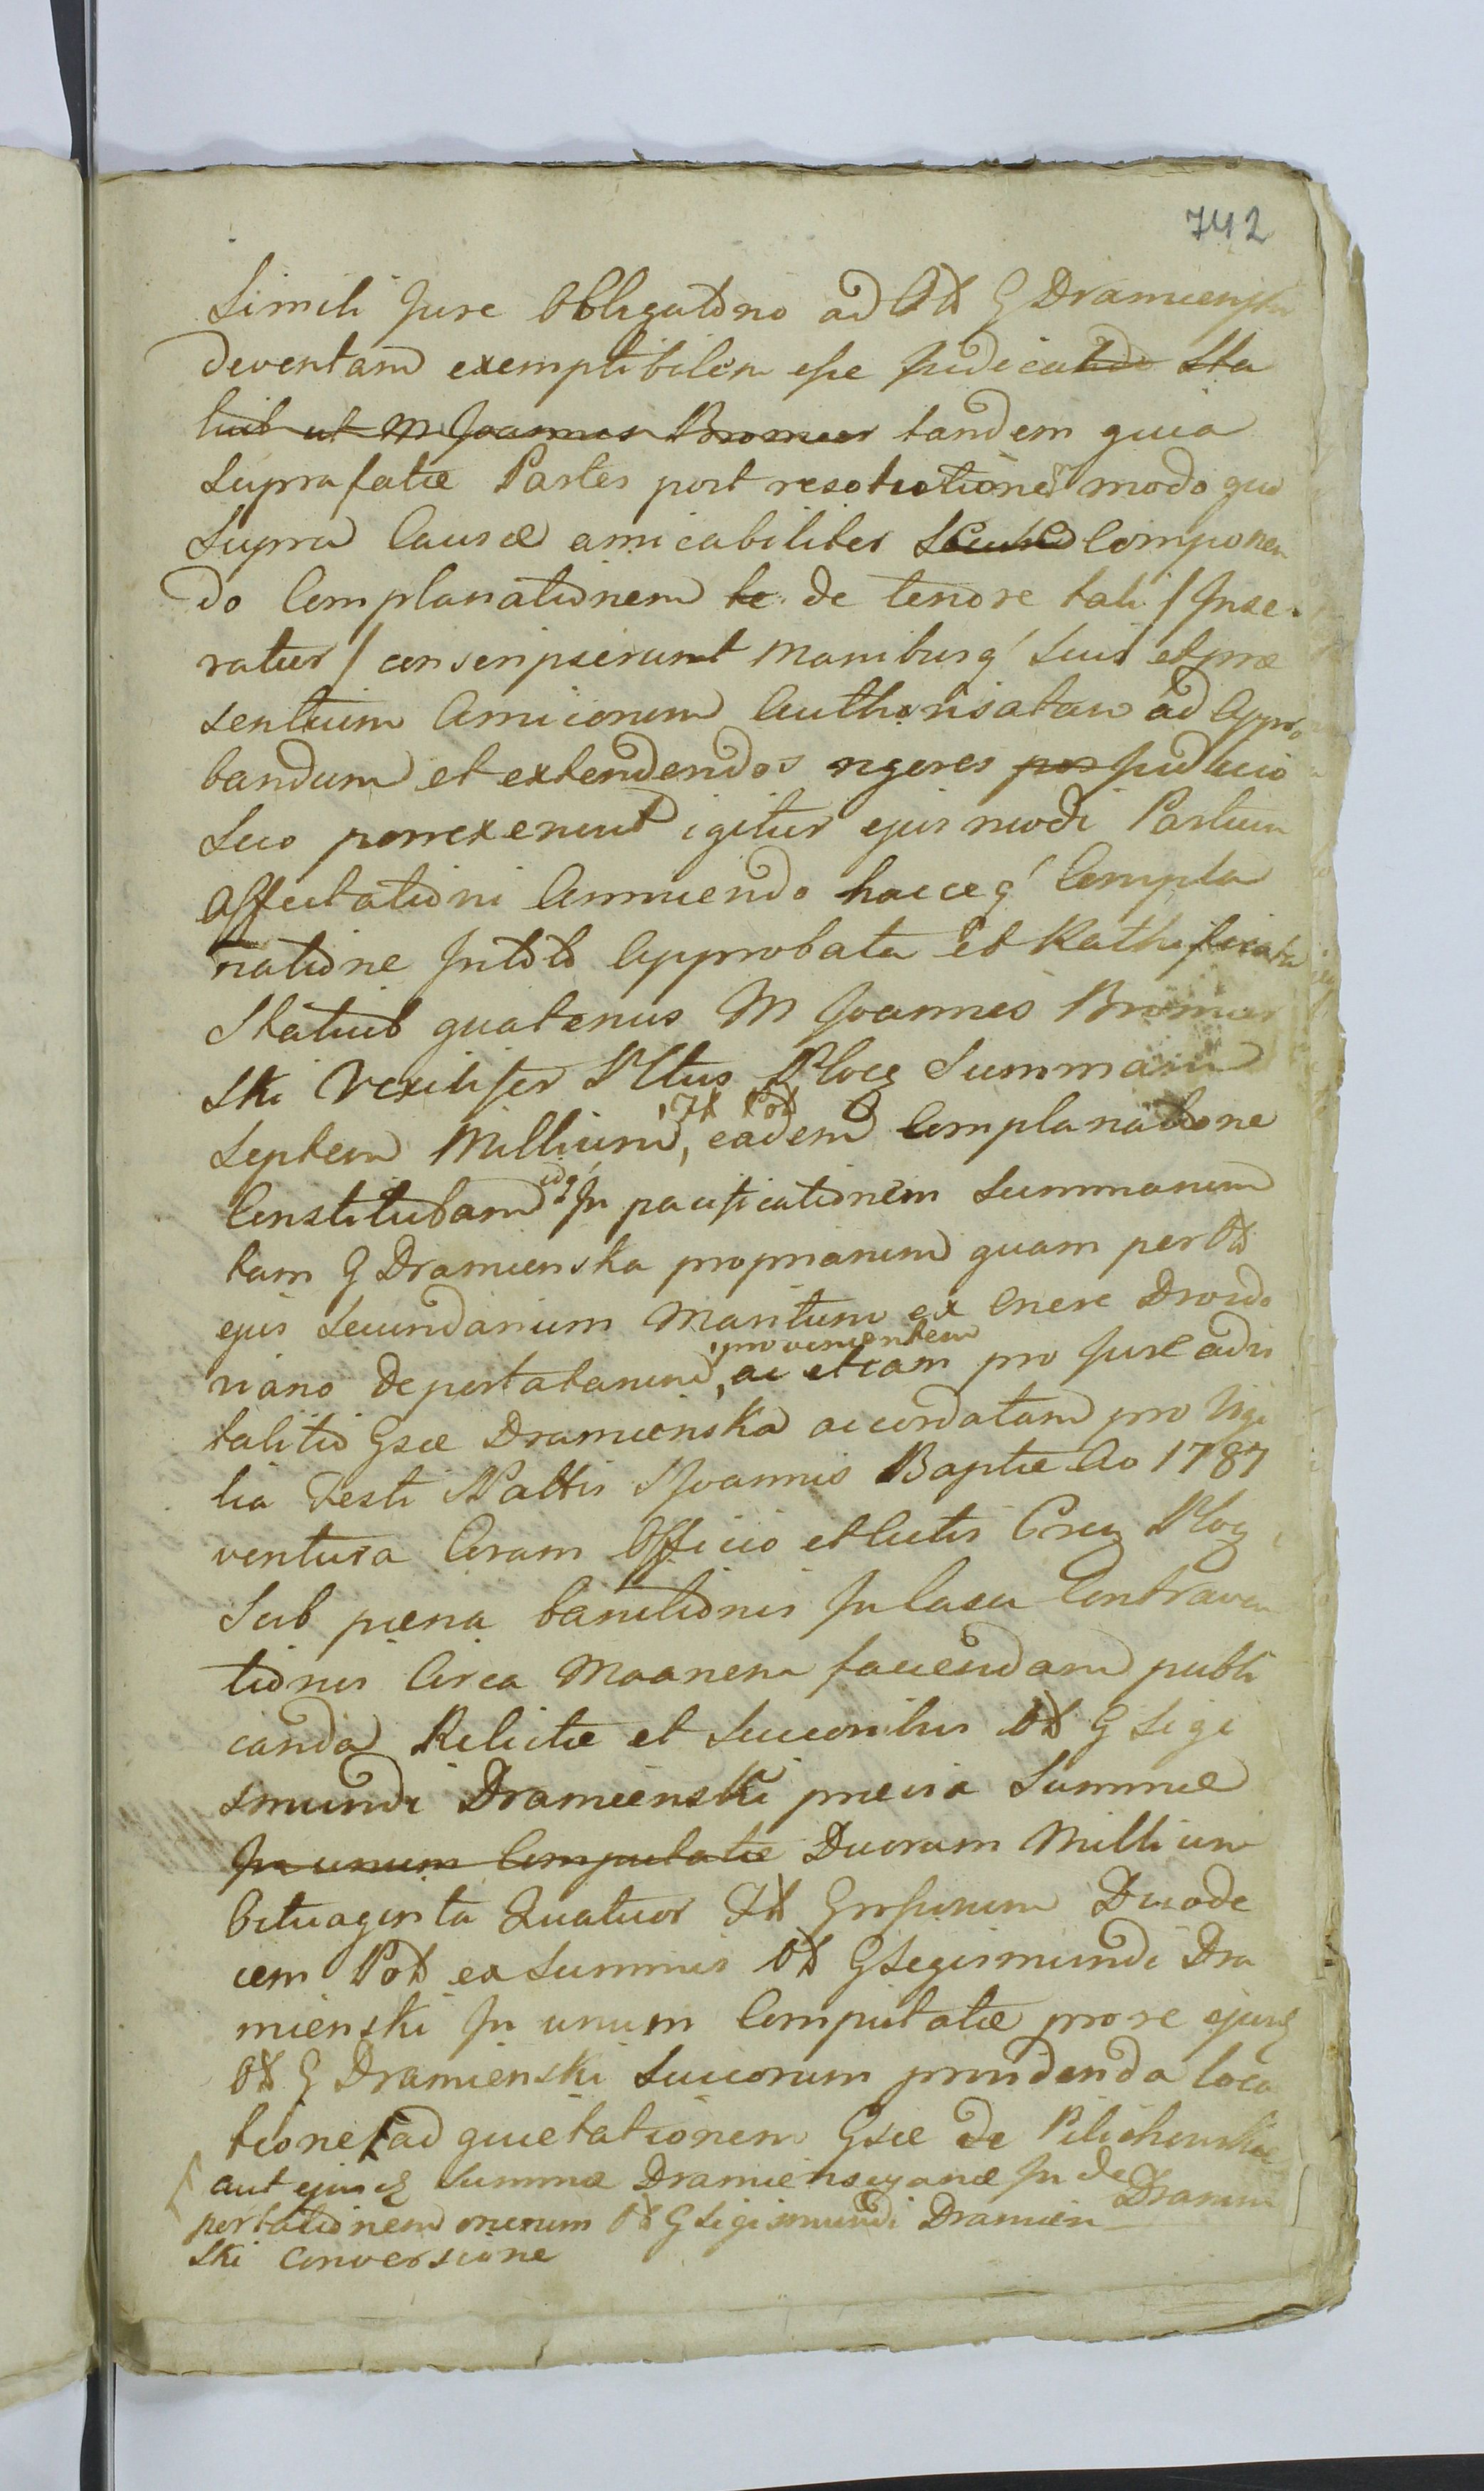 742
Simili Jure Obligatorio ad G Dramiensk
deventam exemptibilem esse Judicando Sta
tuit ut M Joannes Bromier tandem quia
Suprafatæ Partes post resolutionē modo quo
Supra Causæ amicabiliter Componen
do Complanationem te de tenore tali / Inse-
ratur / conscripserunt manibusq' Suis et præ
sentium Amicorum Authorisatam ad Appro
bandum et extendendos rigores per Judicio
Suo porrexerunt igitur ejusmodi Partium
Affectationi Annuendo hacceq' Compla
natione In toto Approbata et Rathificata
Statuit quatenus M Joannes Bromier
ski Vexilifer Pltus Ploc Summam
Septem Millium, eadem Complanatione
Constitutam In pacificationem Summarum
tam G Dramienska propriarum quam per
ejus Secundarium Maritum ex Onere Drozdo
provenientem
viano deportatarum, ac etiam pro Jure adv
talitio Gsæ Dramienska accordatam pro Vigi
lia Festi Nattis S Joannis Baptæ Ao 1787
ventura Coram Officio et Actis Ploc
Sub pæna banitionis In Casu Contraven
tionis Circa Moanem faciendam publi
canda Relictæ et Succoribus G Sigi
smundi Dramienski prævia Summæ
In unum Computatæ Duorum Millium
Octuaginta Quatuor Grossorum Duode
cem ex Summis G Segismundi Dra
mienski In unum Computatæ pro re
G Dramienski Succorum providenda loca
tione ad quietationem Gsæ de Pilichowskie
aut Summæ Dramiensc­yanæ In de
Dramie
portationem onerum G Sigismundi Dramien
ski conversione